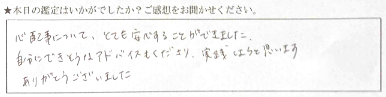 ★本日の鑑定はいかがでしたか？ご感想をお聞かせください。
心配事について、とても安心することができました。
自分にできそうなアドバイスもくださり、実践しようと思います
ありがとうございました